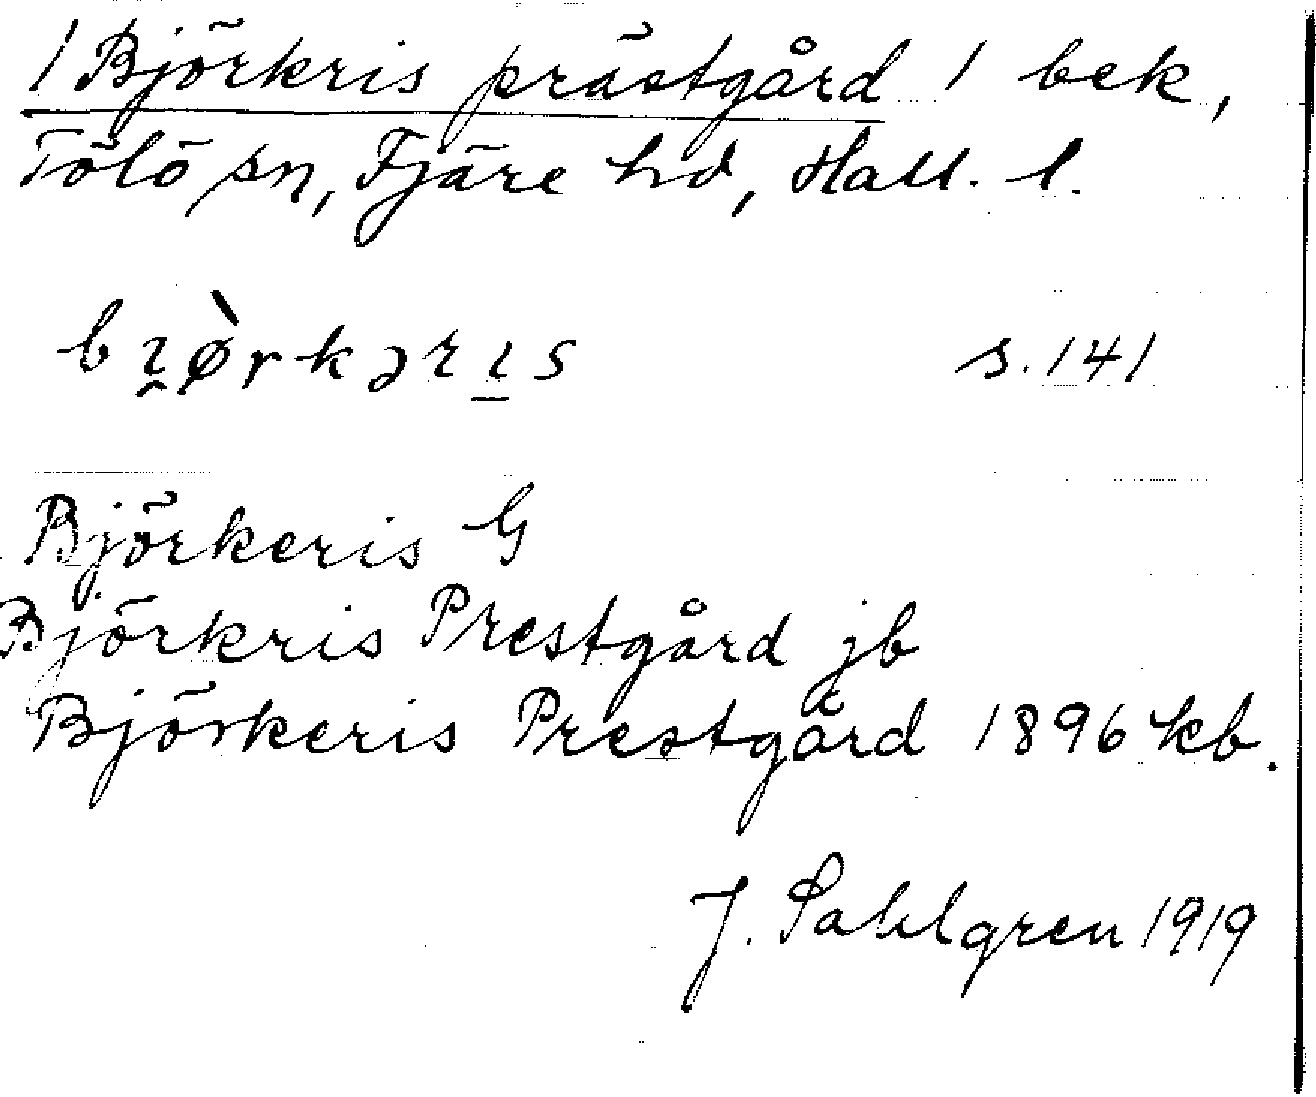 1 Björkris prästgård 1 bek,
Tölö sn, Fjäre hd, Hall. l.
bı̯ø̀rkərı̱s s. 141
Björkeris G
Björkris Prestgård jb
Björkeris Prestgård 1896 kb.
J. Sahlgren 1919